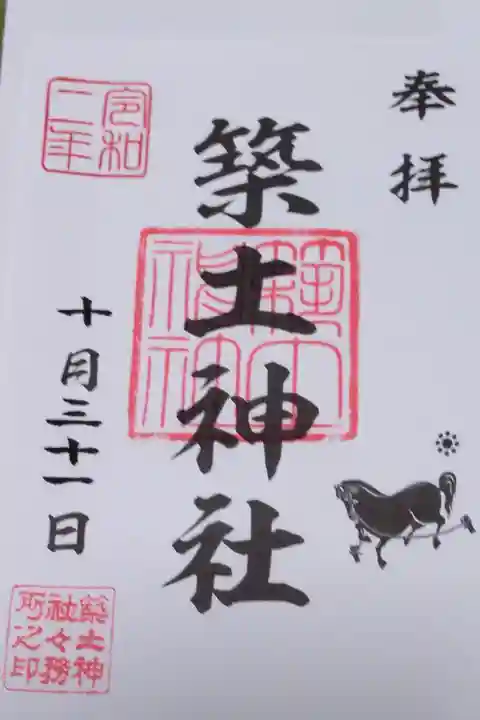 奉拝
築土神社
築土神社
令和二年
十月三十一日
築土神社々務所之印